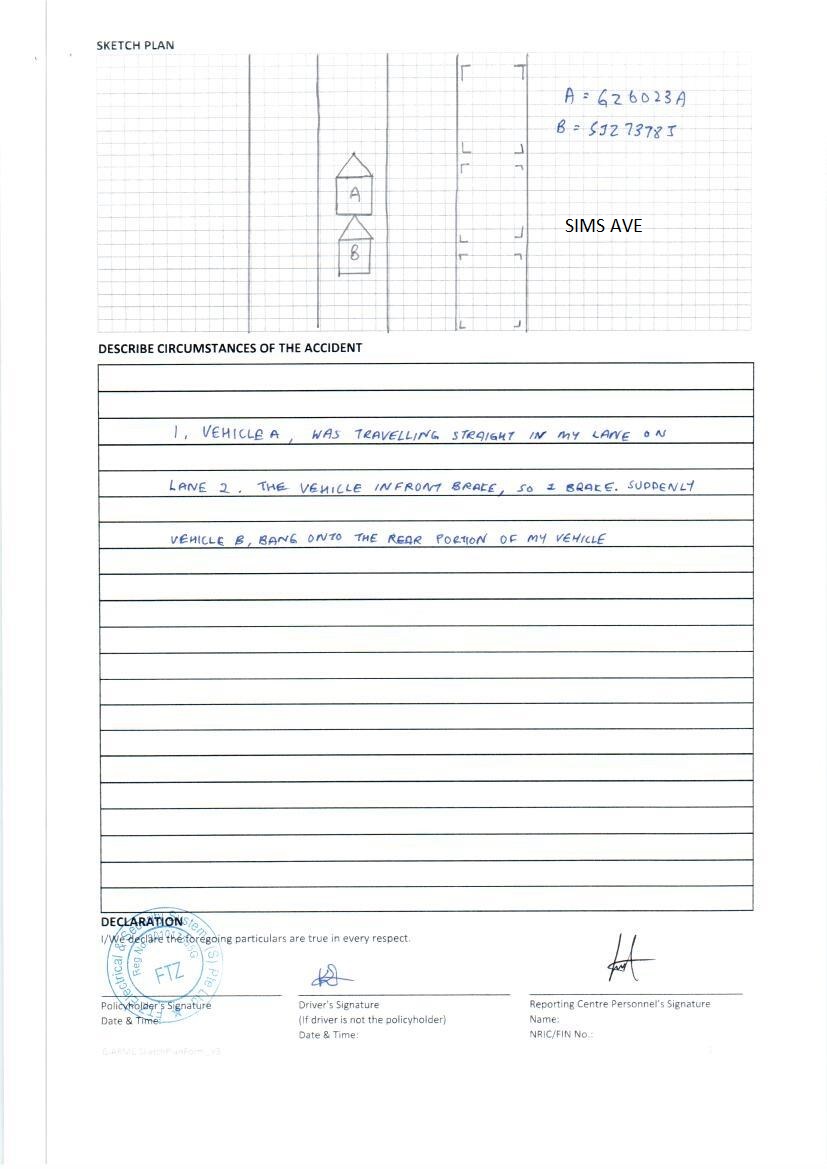 SKETCH PLAN
A = GZ6023A
B = SJZ7378J
A
SIMS AVE
B
DESCRIBE CIRCUMSTANCES OF THE ACCIDENT
I, VEHICLE A, WAS TRAVELLING STRAIGHT IN MY LANE ON
LANE 2. THE VEHICLE INFRONT BRAKE, SO I BRAKE. SUDDENLY
VEHICLE B, BANG ONTO THE REAR PORTION OF MY VEHICLE
DECLARATION
I/We declare the foregoing particulars are true in every respect.
Electrical & Security Systems (S) Pte Ltd
Reg No.
FTZ
Policyholder's Signature
Date & Time:
Driver's Signature
(If driver is not the policyholder)
Date & Time:
Reporting Centre Personnel's Signature
Name:
NRIC/FIN No.: